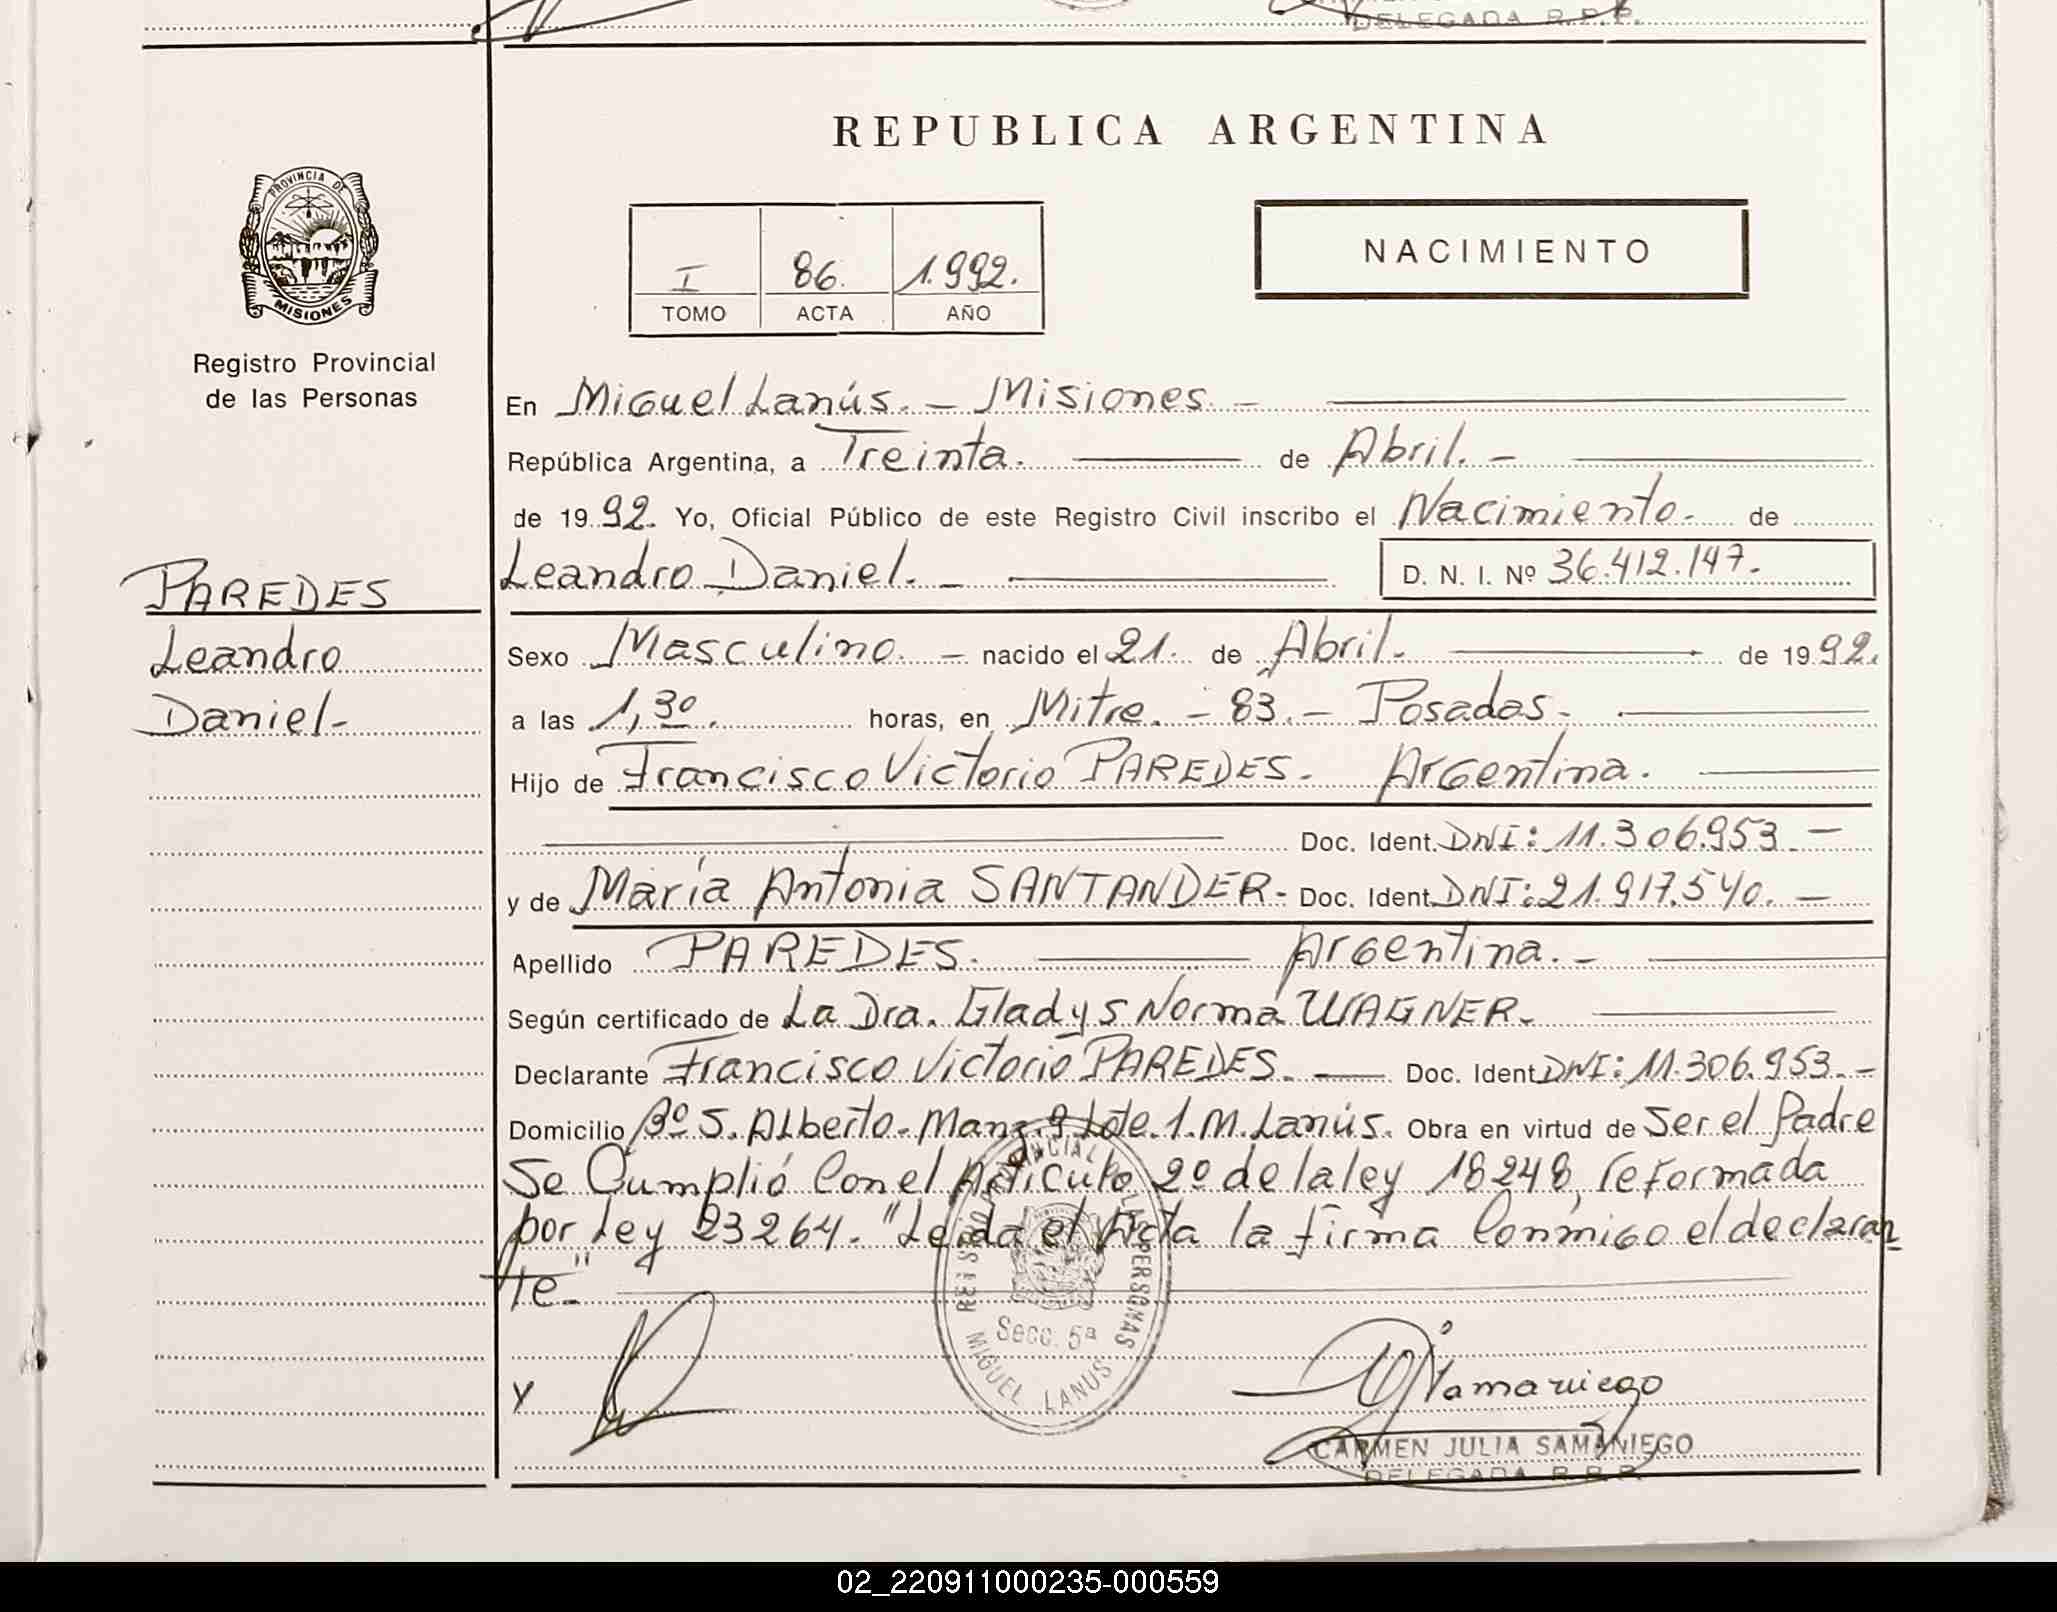 DELEGADA R.P.P.
REPUBLICA ARGENTINA
PROVINCIA DE
MISIONES
Registro Provincial
de las Personas
I 86. 1.992.
TOMO ACTA AÑO
NACIMIENTO
En Miguel Lanús. – Misiones. –
República Argentina, a Treinta. de Abril. –
de 1992. Yo, Oficial Público de este Registro Civil inscribo el Nacimiento. de
Leandro Daniel. – D. N. I. Nº 36.412.147.
PAREDES
Leandro
Daniel-
Sexo Masculino. – nacido el 21. de Abril. de 1992.
a las 1,30. horas, en Mitre. – 83. – Posadas.
Hijo de Francisco Victorio PAREDES. Argentina.
Doc. Ident. DNI: 11.306.953. –
y de María Antonia SANTANDER- Doc. Ident. DNI: 21.917.540. –
Apellido PAREDES. Argentina. –
Según certificado de La Dra. Gladys Norma WAGNER.
Declarante Francisco Victorio PAREDES. Doc. Ident. DNI: 11.306.953. –
Domicilio Bº S. Alberto- Manz. 9 Lote. 1. M. Lanús. Obra en virtud de Ser el Padre
Se Cumplió Con el Artículo 2º de la ley 18248, reformada
por Ley 23264. "Leida el Acta la firma Conmigo el declaran
te"-
REGISTRO PROVINCIAL DE LAS PERSONAS
Secc. 5ª
MIGUEL LANUS
Y
CJSamaniego
CARMEN JULIA SAMANIEGO
DELEGADA R.P.P.
02_220911000235-000559